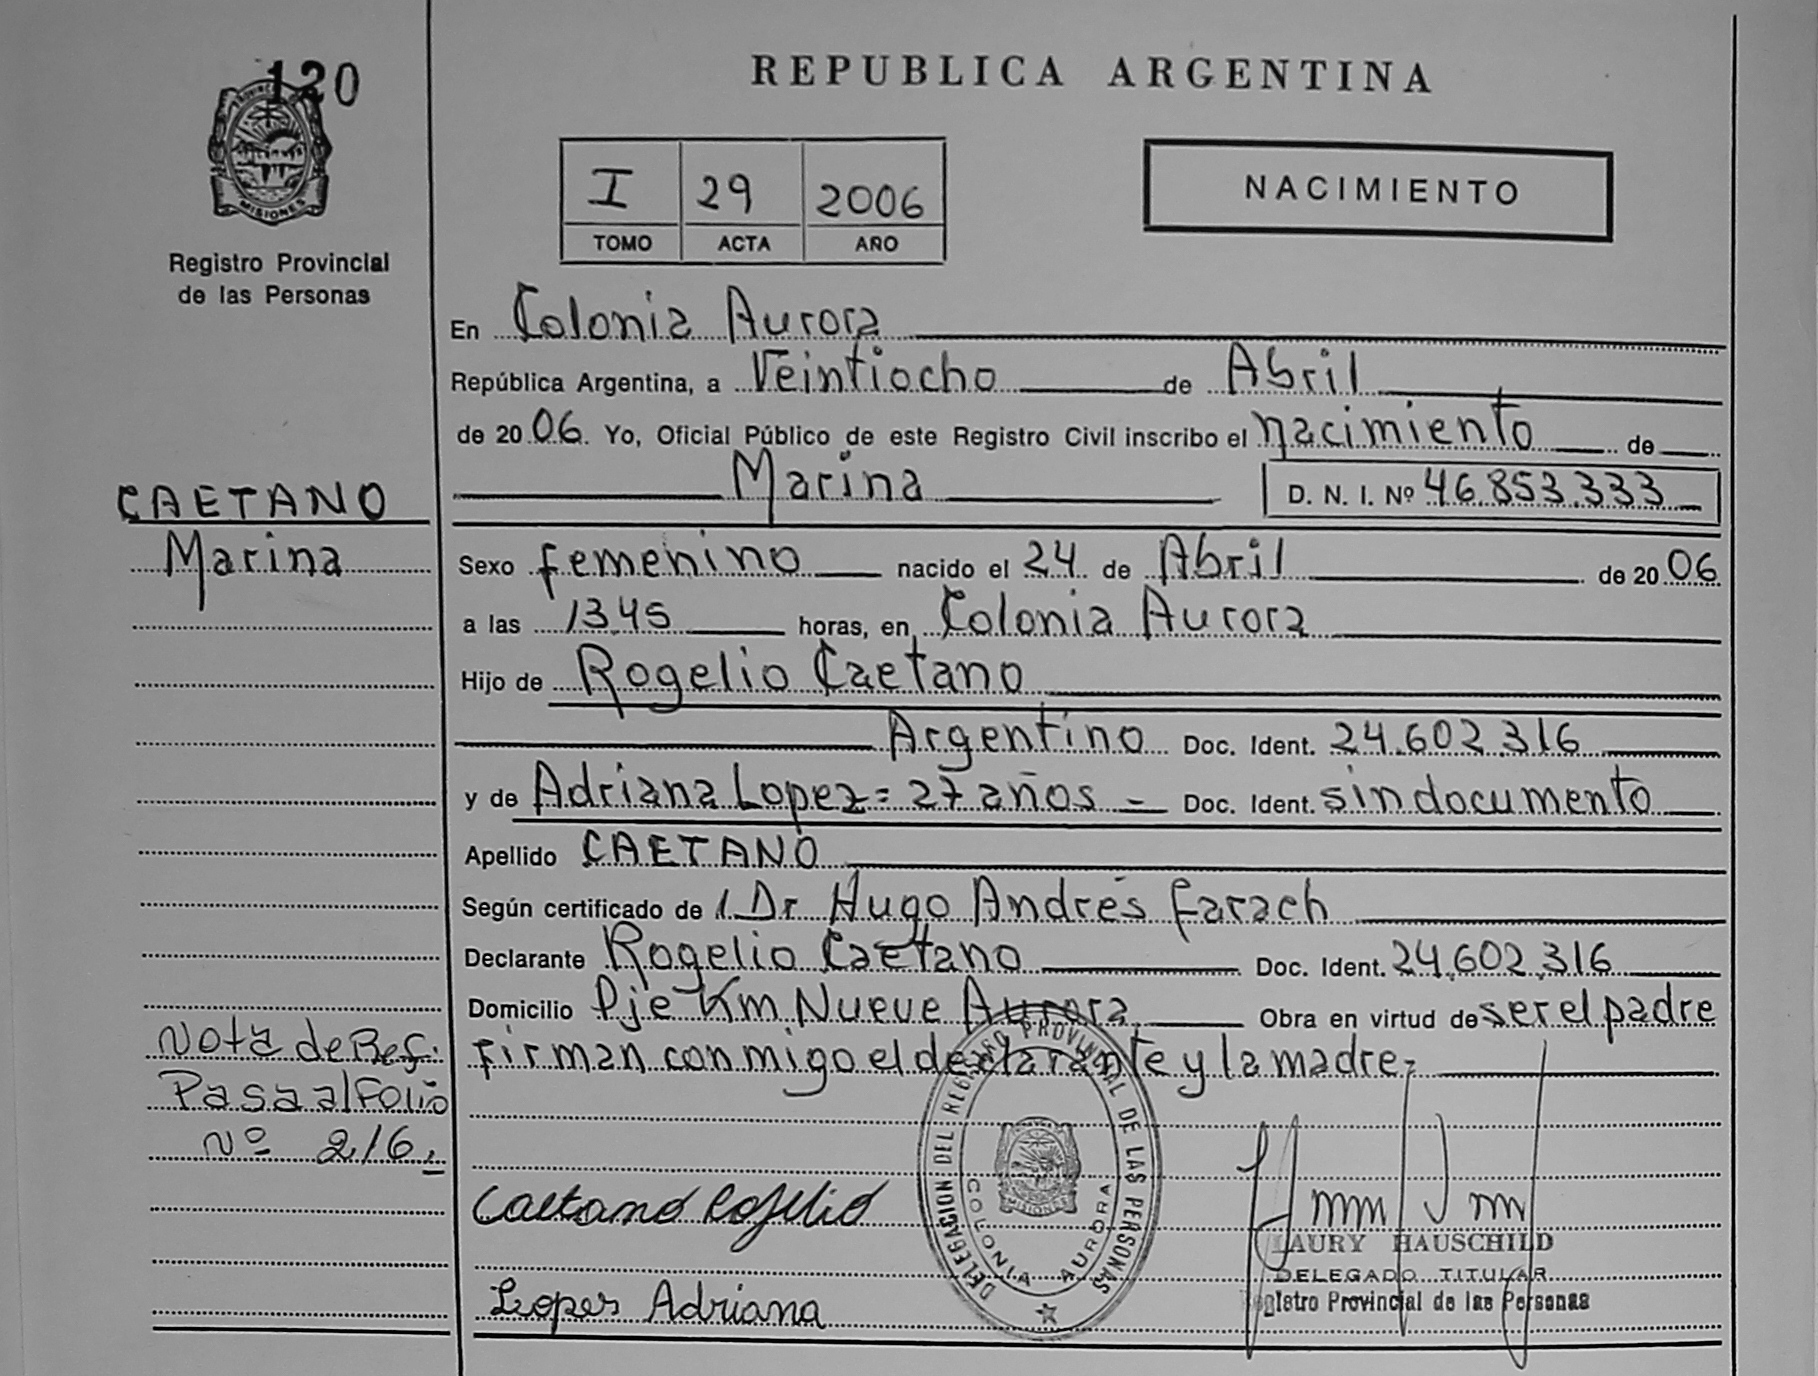 120
MISIONES
Registro Provincial
de las Personas
REPUBLICA ARGENTINA
I 29 2006
TOMO ACTA AÑO
NACIMIENTO
En Colonia Aurora
República Argentina, a Veintiocho de Abril
de 2006. Yo, Oficial Público de este Registro Civil inscribo el nacimiento de
Marina D. N. I. Nº 46.853.333
CAETANO
Marina
Sexo femenino nacido el 24 de Abril de 2006
a las 13,45 horas, en Colonia Aurora
Hijo de Rogelio Caetano
Argentino Doc. Ident. 24.602.316
y de Adriana Lopez = 27 años = Doc. Ident. sin documento
Apellido CAETANO
Según certificado de 1. Dr Hugo Andrés Farach
Declarante Rogelio Caetano Doc. Ident. 24.602.316
Domicilio Pje Km Nueve Aurora Obra en virtud de ser el padre
firman conmigo el declarante y la madre
Nota de Ref.
Pasa al Folio
Nº 216
DELEGACION DEL REGISTRO PROVINCIAL DE LAS PERSONAS
COLONIA AURORA
MISIONES
Caetano Rogelio
Lopes Adriana
LAURY HAUSCHILD
DELEGADO TITULAR
Registro Provincial de las Personas